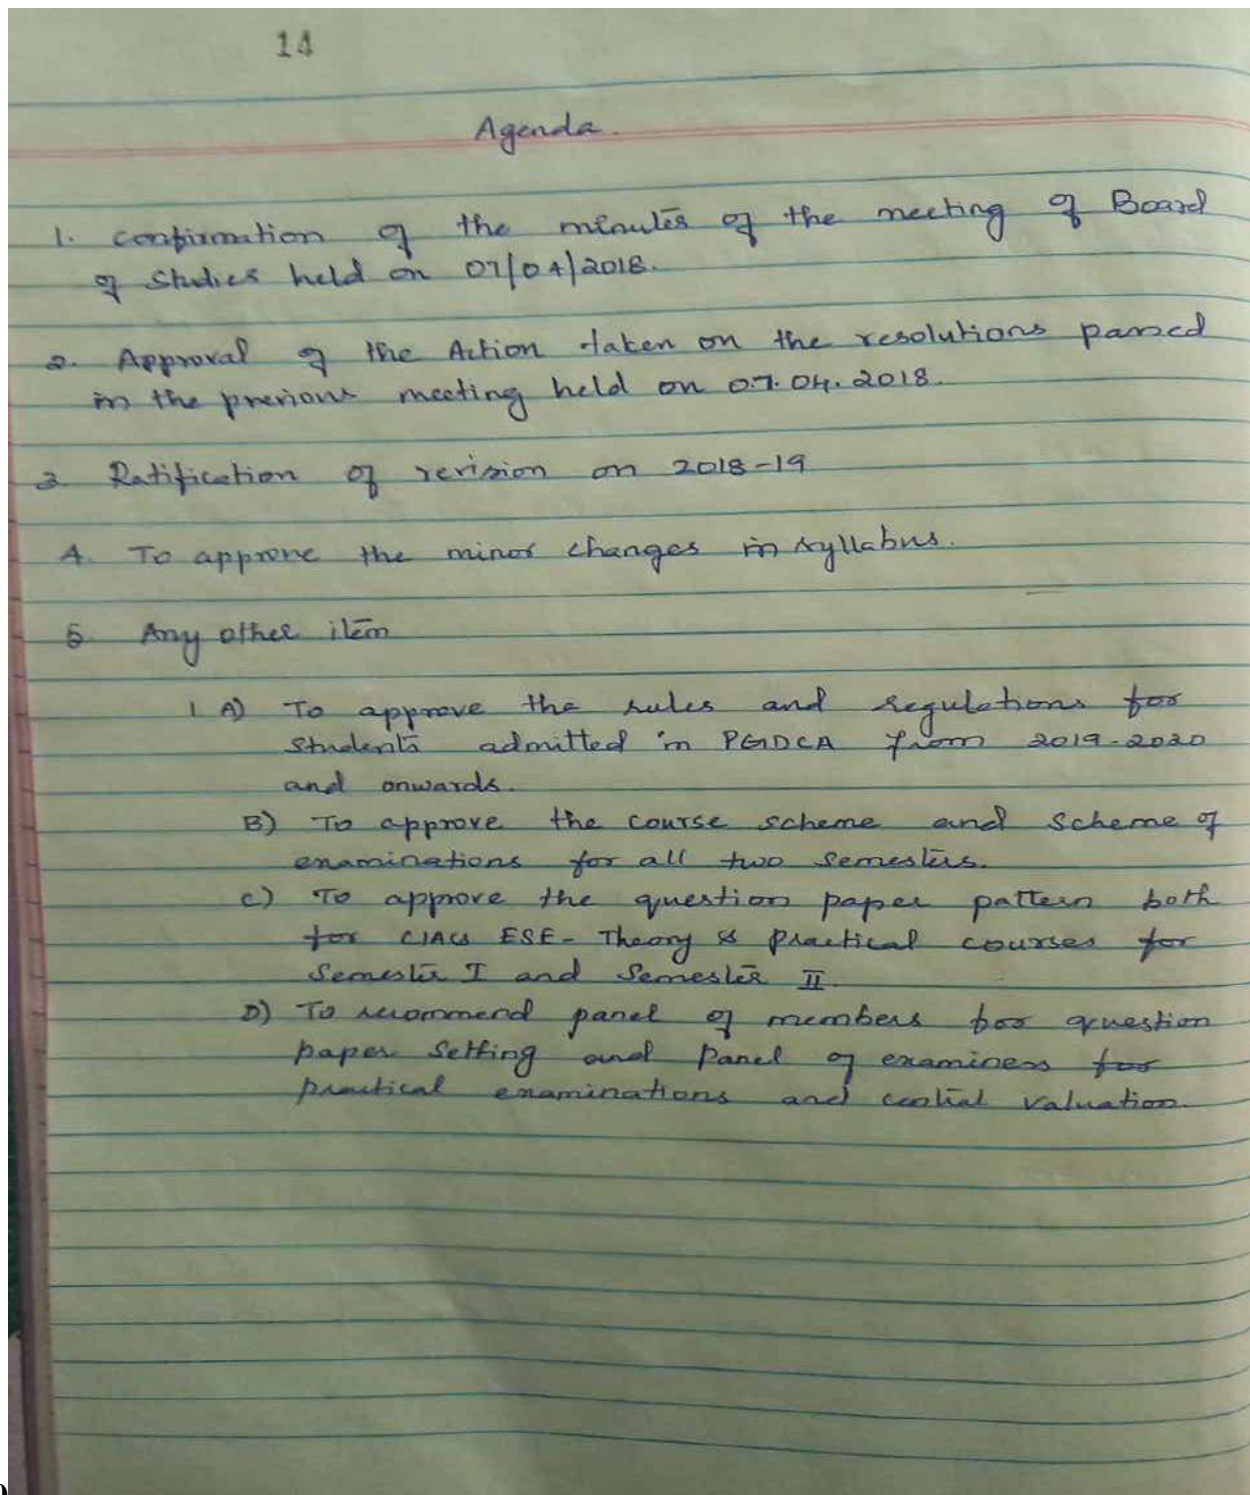 14
Agenda.
1. Confirmation of the minutes of the meeting of Board
of Studies held on 07/04/2018.
2. Approval of the Action taken on the resolutions passed
in the previous meeting held on 07.04.2018.
3 Ratification of revision on 2018-19
4. To approve the minor changes in syllabus.
5 Any other item
1 A) To approve the rules and regulations for
students admitted in PGDCA from 2019-2020
and onwards.
B) To approve the course scheme and scheme of
examinations for all two semesters.
C) To approve the question paper pattern both
for ESE - Theory & Practical courses for
Semester I and Semester II.
D) To recommend panel of members for question
paper setting and panel of examiners for
practical examinations and central valuation.